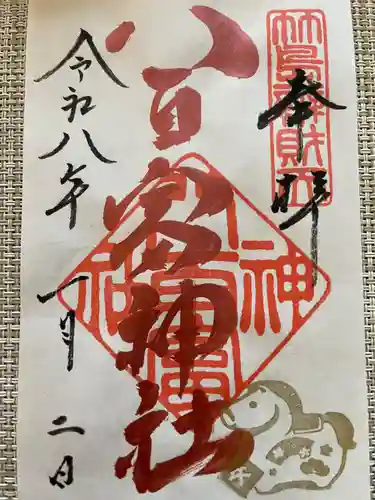 竹島辨財天
奉拝
八百富神社
八百富神社
令和八年
一月
二日